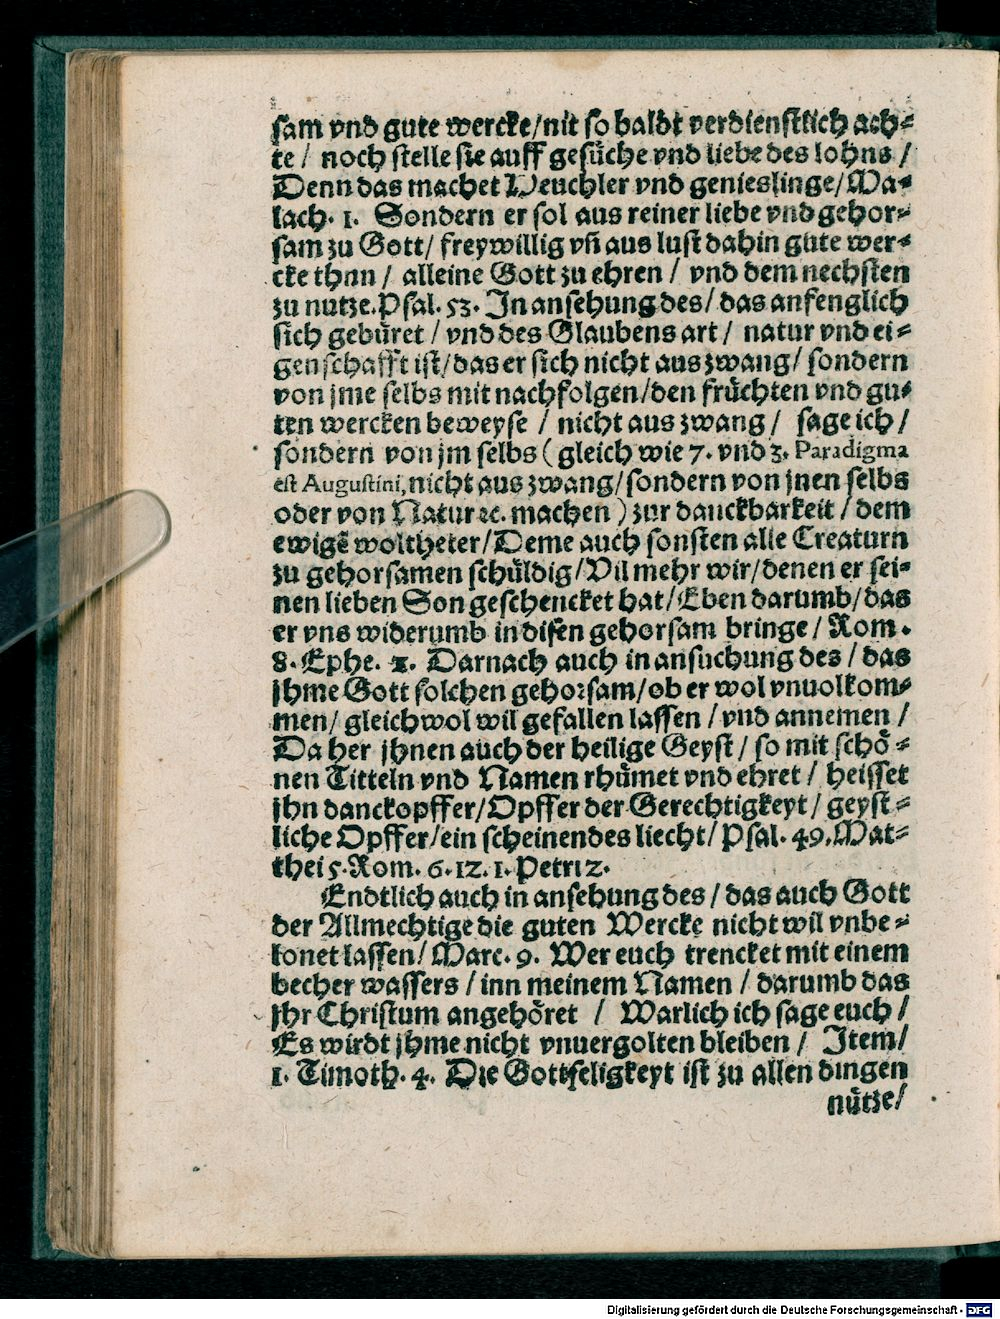 sam vnd gute wercke/nit so baldt verdienstlich ach⸗
te / noch stelle sie auff gesůche vnd liebe des lohns /
Denn das machet Heuchler vnd genieslinge/Ma⸗
lach. 1. Sondern er sol aus reiner liebe vnd gehor⸗
sam zu Gott/ freywillig vñ aus lust dahin gute wer⸗
cke thun / alleine Gott zu ehren / vnd dem nechsten
zu nutze.Psal. 53. In ansehung des/ das anfenglich
sich gebůret / vnd des Glaubens art / natur vnd ei⸗
genschafft ist/das er sich nicht aus zwang/ sondern
von jme selbs mit nachfolgen/den frůchten vnd gu⸗
ten wercken beweyse / nicht aus zwang / sage ich /
sondern von jm selbs ( gleich wie 7. vnd 3. Paradigma
est Augustini, nicht aus zwang/sondern von jnen selbs
oder von Natur ꝛc. machen ) zur danckbarkeit / dem
ewigẽ woltheter/Deme auch sonsten alle Creaturn
zu gehorsamen schůldig/Vil mehr wir/denen er sei⸗
nen lieben Son geschencket hat/Eben darumb/das
er vns widerumb in disen gehorsam bringe / Rom.
8. Ephe. 2. Darnach auch in ansuchung des / das
jhme Gott solchen gehorsam/ob er wol vnuolkom⸗
men/ gleichwol wil gefallen lassen / vnd annemen /
Da her jhnen auch der heilige Geyst / so mit schoͤ⸗
nen Titteln vnd Namen rhůmet vnd ehret / heisset
jhn danckopffer/Opffer der Gerechtigkeyt / geyst⸗
liche Opffer/ein scheinendes liecht/ Psal. 49. Mat⸗
thei 5. Rom. 6. 12. 1. Petri 2.
Endtlich auch in ansehung des / das auch Gott
der Allmechtige die guten Wercke nicht wil vnbe⸗
lonet lassen/ Marc. 9. Wer euch trencket mit einem
becher wassers / inn meinem Namen / darumb das
jhr Christum angehoͤret / Warlich ich sage euch /
Es wirdt jhme nicht vnuergolten bleiben / Item/
1. Timoth. 4. Die Gottseligkeyt ist zu allen dingen
nůtze/
Digitalisierung gefördert durch die Deutsche Forschungsgemeinschaft - DFG